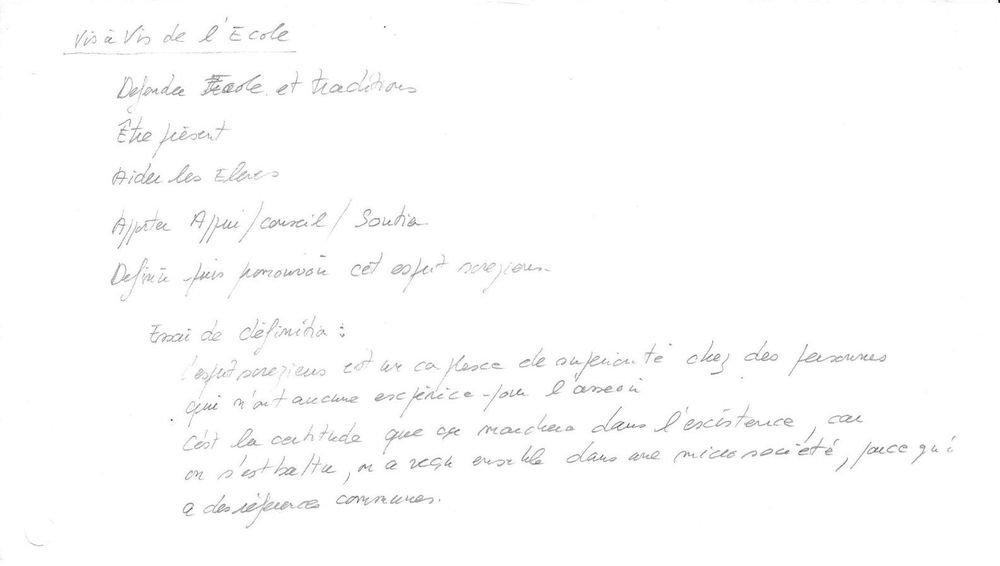 Vis à Vis de l'Ecole
Defendre Ecole et traditions
Être présent
Aider les Eleves
Apporter Appui/conseil/Soutien
Definir puis promouvoir cet esprit soregiens.
Essai de définition :
l'esprit soregiens est un complexe de supériorité chez des personnes
qui n'ont aucune expérience pour l'asseoir
C'est la certitude que ça marchera dans l'existence, car
on s'est battu, on a vécu ensemble dans une micro société, parce qu'
a des références communes.